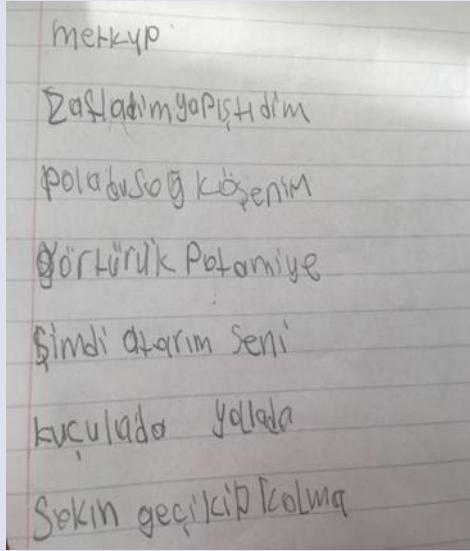 merkyp
Zafladımyapıştıdim
poladusoğ köşenim
görtürük Potamiye
Şimdi atarım Seni
kuçulada yollada
Sokın geçikip kolma